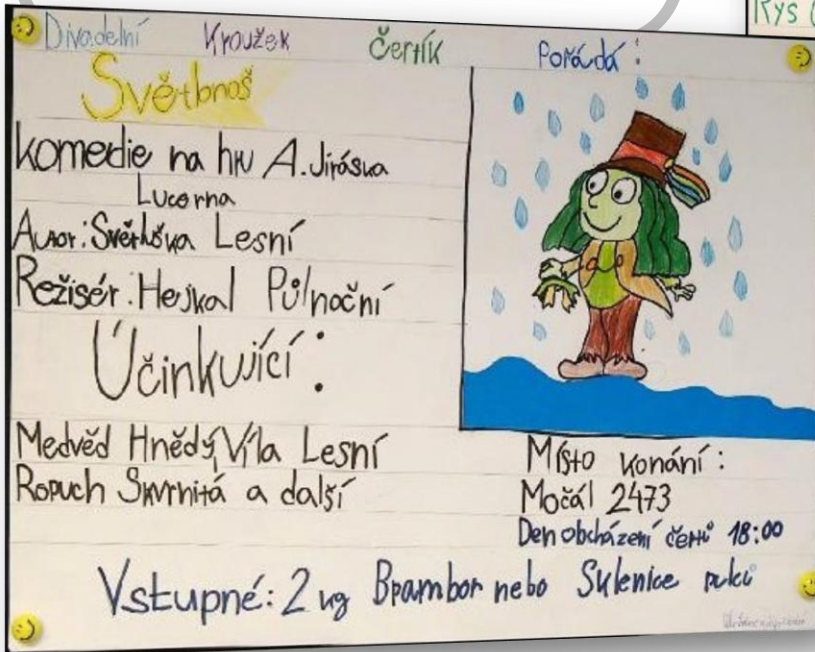 Rys
Divadelní Kroužek Čertík Pořádá:
Světlonoš
Komedie na hru A. Jiráska
Lucerna
Autor: Světluška Lesní
Režisér: Hejkal Půlnoční
Účinkující:
Medvěd Hnědý, Víla Lesní
Ropuch Skvrnitá a další
Místo konání:
Močál 2473
Den obcházení čertů 18:00
Vstupné: 2 kg Brambor nebo Sklenice